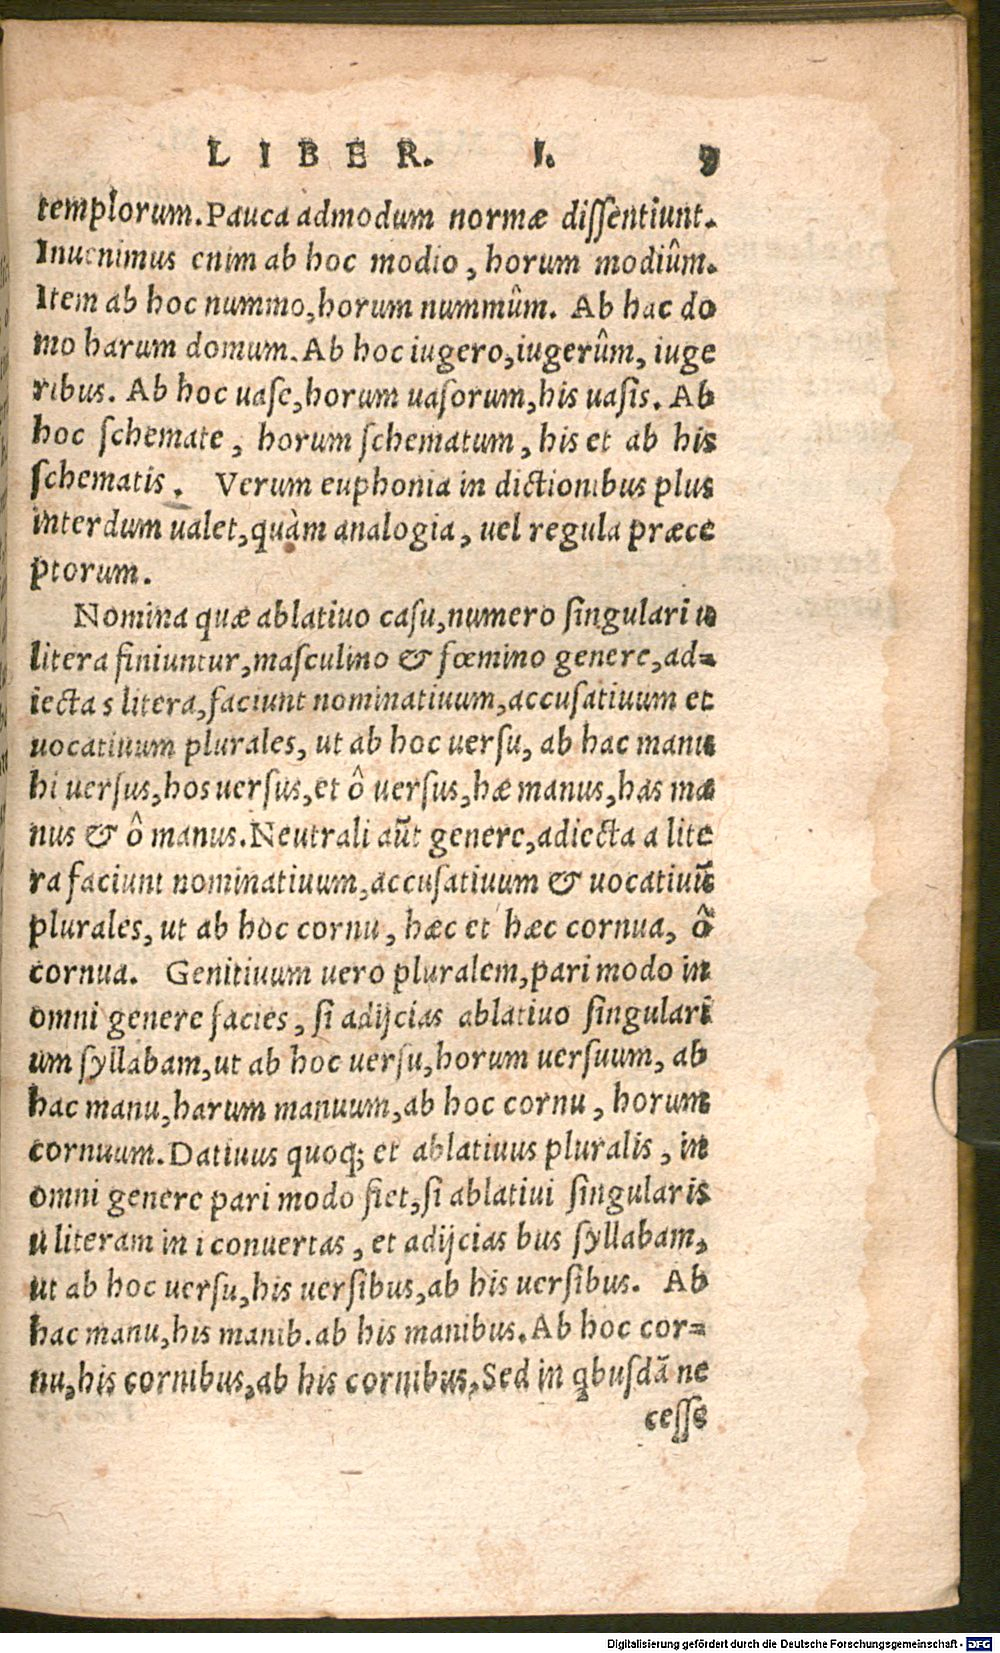 LIBER. I. 9
templorum. Pauca admodum normæ dissentiunt.
Inuenimus enim ab hoc modio, horum modiûm.
Item ab hoc nummo, horum nummûm. Ab hac do
mo harum domum. Ab hoc iugero, iugerûm, iuge
ribus. Ab hoc uase, horum uasorum, his uasis. Ab
hoc schemate, horum schematum, his et ab his
schematis. Verum euphonia in dictionibus plus
interdum ualet, quàm analogia, uel regula præce
ptorum.
Nomina quæ ablatiuo casu, numero singulari u
litera finiuntur, masculino & fœmino genere, ad=
iecta s litera, faciunt nominatiuum, accusatiuum et
uocatiuum plurales, ut ab hoc uersu, ab hac manu
hi uersus, hos uersus, et ô uersus, hæ manus, has ma
nus & ô manus. Neutrali aũt genere, adiecta a lite
ra faciunt nominatiuum, accusatiuum & uocatiuũ
plurales, ut ab hoc cornu, hæc et hæc cornua, ô
cornua. Genitiuum uero pluralem, pari modo in
omni genere facies, si adijcias ablatiuo singulari
um syllabam, ut ab hoc uersu, horum uersuum, ab
hac manu, harum manuum, ab hoc cornu, horum
cornuum. Datiuus quoq; et ablatiuus pluralis, in
omni genere pari modo fiet, si ablatiui singularis
u literam in i conuertas, et adijcias bus syllabam,
ut ab hoc uersu, his uersibus, ab his uersibus. Ab
hac manu, his manib. ab his manibus. Ab hoc cor=
nu, his cornibus, ab his cornibus, Sed in qbusdã ne
cesse
Digitalisierung gefördert durch die Deutsche Forschungsgemeinschaft - DFG